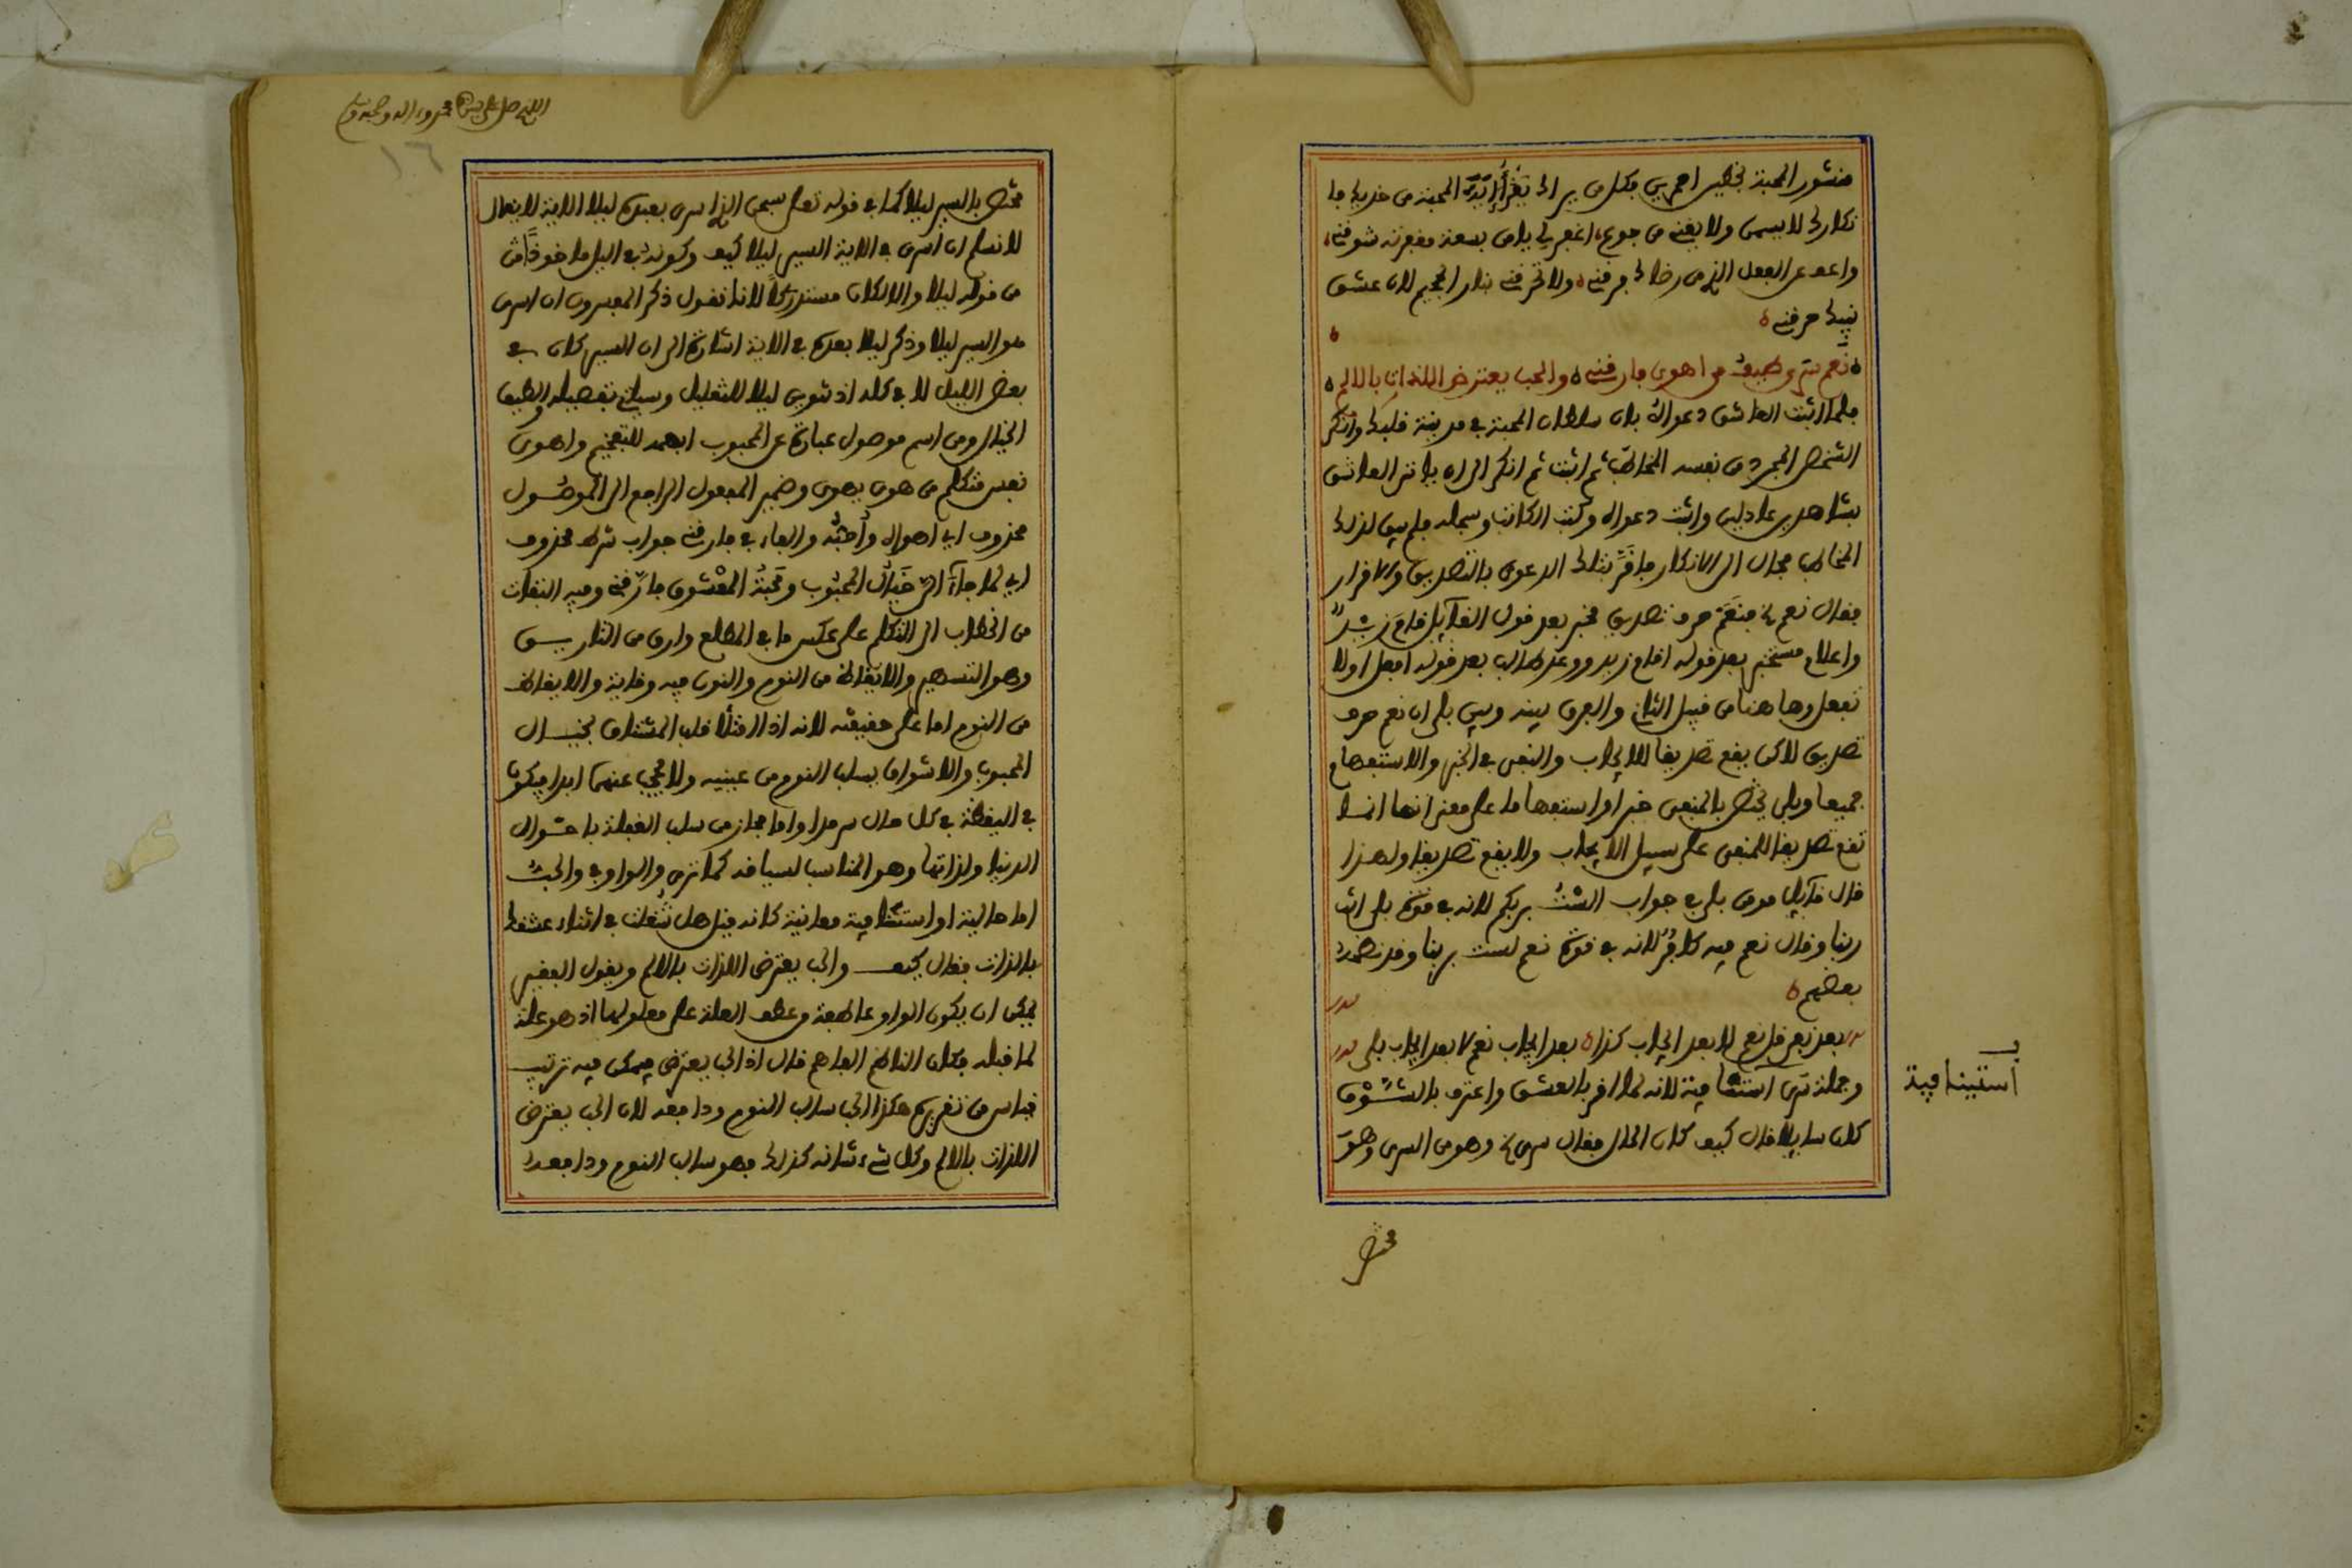 منشور المحبة بخطير احمرين فكل من يراك يقرأ آية المحبة من خديك فا
نكارك لا يسمن ولا يغني من جوع، اغفر لي يا من بسعة مغفرته شوقني،
واعف عن الفعل الذي من رضاك فرقني ولا تحرقني بنار الجحيم لان عشق
نبيك حرقني
نَعَم سَرى طيفُ من اهوى فارقني والحب يعترض اللذات بالالم
فلما اثبت العاشق دعواه بان سلطان المحبة في مدينة قلبك وانكر
الشخص المجرد من نفسه المخاطب ثم اثبت ثم انكر الى ان ياتى العاشق
بشاهدين عادلين واثبت دعواه وكتب الكاتب وسجله فلم يبق لذلك
المخاطب مجال الى الانكار فاقر بتلك الدعوى بالتصديق والاقرار
فقال نعم الخ فنعم حرف تصديق مخبر بعد قول القآيل قام زيد
واعلام مستخبر بعد قوله اقام زيد ووعد طالب بعد قوله افعل اولا
تفعل وهاهنا من قبيل الثاني والفرق بينه وبين بلى ان نعم حرف
تصديق لاكن يقع تصديقا للايجاب والنفى في الخبر والاستفهام
جميعا وبلى يختص بالمنفى خبرا او استفهاما على معنى انها انما
تقع تصديقا للمنفى على سبيل الايجاب ولا يقع تصديقا ولهذا
قال قآيل مومن بلى في جواب الست بربكم لانه في قوة بلى انت
ربنا وقال نعم فيه كافر لانه في قوة نعم لست بربنا وقد نظمه
بعضهم
بعد نفى قل نعم لا بعد ايجاب كذا بعد ايجاب نعم لا بعد ايجاب بلى
وجملة سرى استئنافية لانه لما اقر بالعشق واعترف بالشوق
كان سايلا قال كيف كان الحال فقال سرى الخ وهو من السرى وهو
استينافية
مختص
اللهم صل على محمد واله وصحبه
١٦
مختص بالسير ليلا كما في قوله تعلى سبحن الذي اسرى بعبده ليلا الاية لا يقال
لا نسلم ان اسرى في الاية السير ليلا كيف وكونه في اليل ماخوذًا من
من قوله ليلا والا لكان مستدركًا لانا نقول ذكر المفسرون ان اسرى
هو السير ليلا وذكر ليلا بعده في الاية اشارة الى ان السير كان في
بعض الليل لا في كله اذ تنوين ليلا للتقليل وسياتي تفصيله والطيف
الخيال ومن اسم موصول عبارة عن المحبوب ابهمه للتفخيم واهوى
نفس متكلم من هوى يهوى وضمير المفعول الراجع الى الموصول
محذوف اي اهواه وأحبّه والفاء في فارقني جواب شرط محذوف
اي لما جآء الىّ خيال المحبوب ومحبة المعشوق فارقني وفيه التفات
من الخطاب الى التكلم على عكس ما في المطلع وارق من التاريق
وهو التسهير والايقاظ من النوم والنون فيه وقاية والايقاظ
من النوم اما على حقيقته لانه اذا امتلأ قلب المشتاق بخيال
المحبوب والاشواق يسلب النوم من عينيه ولا يجئ عنهما ابدا فيكون
في اليقظة في كل حال سرمدا واما مجاز من سلب الغفلة باحوال
الدنيا ولذاتها وهو المناسب لسياقه كما ترى والواو في والحب
اما حالية او استئنافية معانية كانه قيل هل شغلت في اثناء عشقك
بالذات فقال كيف والحب يعترض اللذات بالالم ويقول الفقير
يمكن ان يكون الواو عاطفة وعطف العلة على معلولها اذ هو علة
لما قبله فكان الناظم الفاهم قال اذ الحب يعترض فيمكن فيه ترتيب
قياس من تقريره هكذا الحب سالب النوم ودافعه لان الحب يعترض
اللذات بالالم وكل شيء شانه كذلك فهو سالب النوم ودافعه